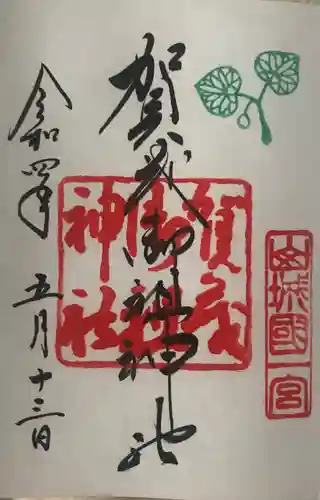 山城國一宮
賀茂御祖神社
賀茂御祖神社
令和四年五月十三日